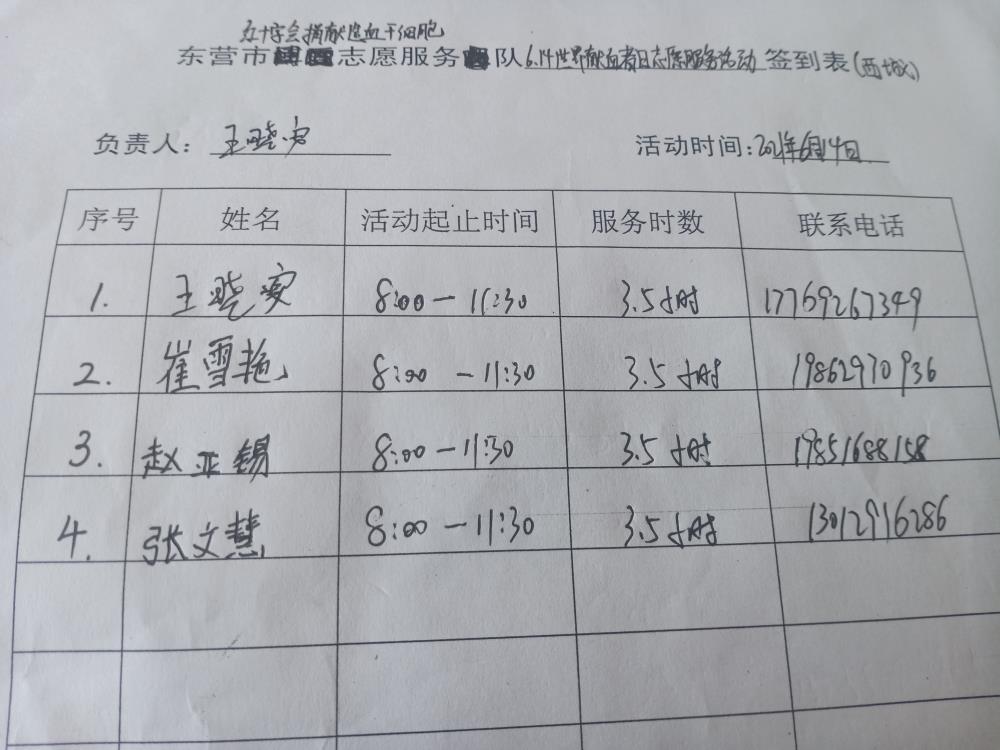 红十字会捐献造血干细胞
东营市志愿服务队6.14世界献血者日志愿服务活动签到表(西城)
负责人：王晓安 活动时间：2021年6月14日
序号 姓名 活动起止时间 服务时数 联系电话
1. 王晓安 8:00—11:30 3.5小时 17769267349
2. 崔雪艳 8:00—11:30 3.5小时 19862970936
3. 赵亚锡 8:00—11:30 3.5小时 19851688158
4. 张文慧 8:00—11:30 3.5小时 13012916286